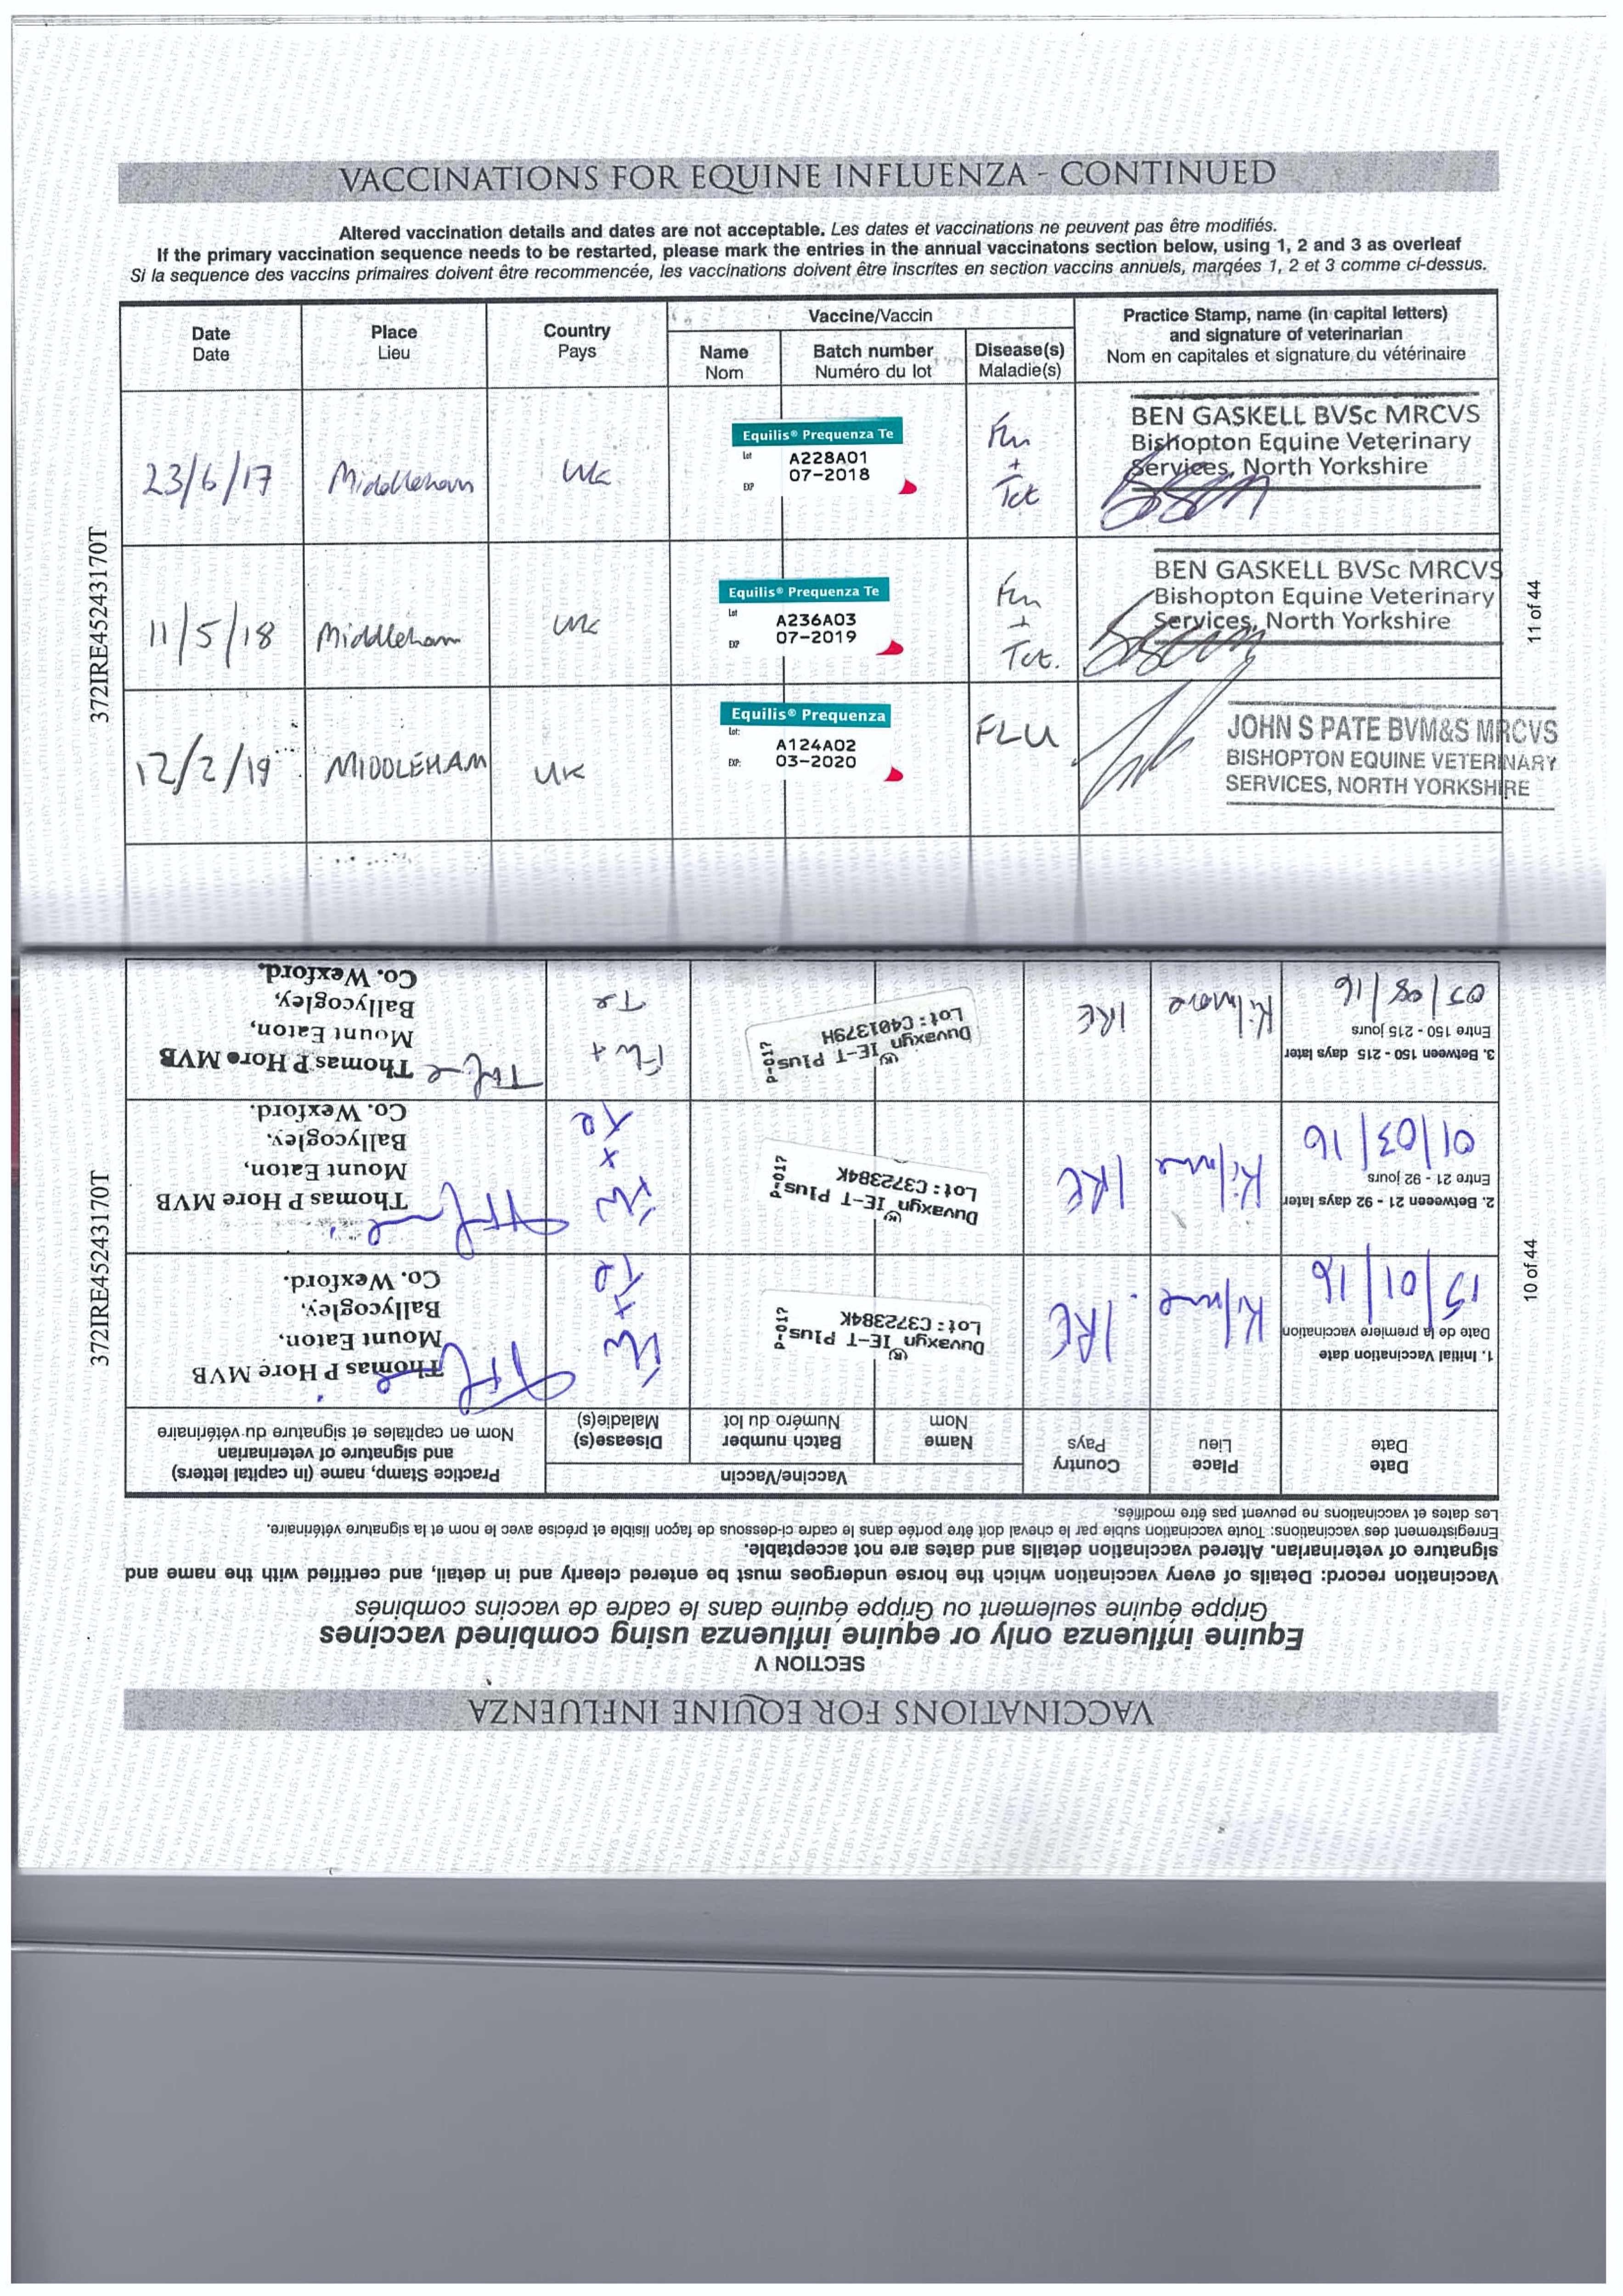 VACCINATIONS FOR EQUINE INFLUENZA - CONTINUED
Altered vaccination details and dates are not acceptable. Les dates et vaccinations ne peuvent pas être modifiés.
If the primary vaccination sequence needs to be restarted, please mark the entries in the annual vaccinatons section below, using 1, 2 and 3 as overleaf
Si la sequence des vaccins primaires doivent être recommencée, les vaccinations doivent être inscrites en section vaccins annuels, marqées 1, 2 et 3 comme ci-dessus.
Date
Date
Place
Lieu
Country
Pays
Vaccine/Vaccin
Name
Nom
Batch number
Numéro du lot
Disease(s)
Maladie(s)
Practice Stamp, name (in capital letters)
and signature of veterinarian
Nom en capitales et signature du vétérinaire
23/6/17
Middleham
UK
Equilis® Prequenza Te
Lot A228A01
EXP 07-2018
Flu
+
Tet
BEN GASKELL BVSc MRCVS
Bishopton Equine Veterinary
Services, North Yorkshire
11/5/18
Middleham
UK
Equilis® Prequenza Te
Lot A236A03
EXP 07-2019
Flu
+
Tet.
BEN GASKELL BVSc MRCVS
Bishopton Equine Veterinary
Services, North Yorkshire
12/2/19
MIDDLEHAM
UK
Equilis® Prequenza
Lot: A124A02
EXP: 03-2020
FLU
JOHN S PATE BVM&S MRCVS
BISHOPTON EQUINE VETERINARY
SERVICES, NORTH YORKSHIRE
372IRE45243170T
11 of 44
VACCINATIONS FOR EQUINE INFLUENZA
SECTION V
Equine influenza only or equine influenza using combined vaccines
Grippe équine seulement ou Grippe équine dans le cadre de vaccins combinés
Vaccination record: Details of every vaccination which the horse undergoes must be entered clearly and in detail, and certified with the name and
signature of veterinarian. Altered vaccination details and dates are not acceptable.
Enregistrement des vaccinations: Toute vaccination subie par le cheval doit être portée dans le cadre ci-dessous de façon lisible et précise avec le nom et la signature vétérinaire.
Les dates et vaccinations ne peuvent pas être modifiés.
Date
Date
Place
Lieu
Country
Pays
Vaccine/Vaccin
Name
Nom
Batch number
Numéro du lot
Disease(s)
Maladie(s)
Practice Stamp, name (in capital letters)
and signature of veterinarian
Nom en capitales et signature du vétérinaire
1. Initial Vaccination date
Date de la première vaccination
15/01/16
Kilmore
IRE
Duvaxyn IE-T Plus
(R)
Lot: C372384K
P-017
Flu
+
Te
Thomas P Hore MVB
Mount Eaton,
Ballycogley,
Co. Wexford.
2. Betweeen 21 - 92 days later
Entre 21 - 92 jours
01/03/16
Kilmore
IRE
Duvaxyn IE-T Plus
(R)
Lot: C372384K
P-017
Flu
+
Te
Thomas P Hore MVB
Mount Eaton,
Ballycogley,
Co. Wexford.
3. Between 150 - 215 days later
Entre 150 - 215 jours
05/08/16
Kilmore
IRE
Duvaxyn IE-T Plus
(R)
Lot: C401379H
P-017
Flu +
Te
Thomas P Hore MVB
Mount Eaton,
Ballycogley,
Co. Wexford.
372IRE45243170T
10 of 44